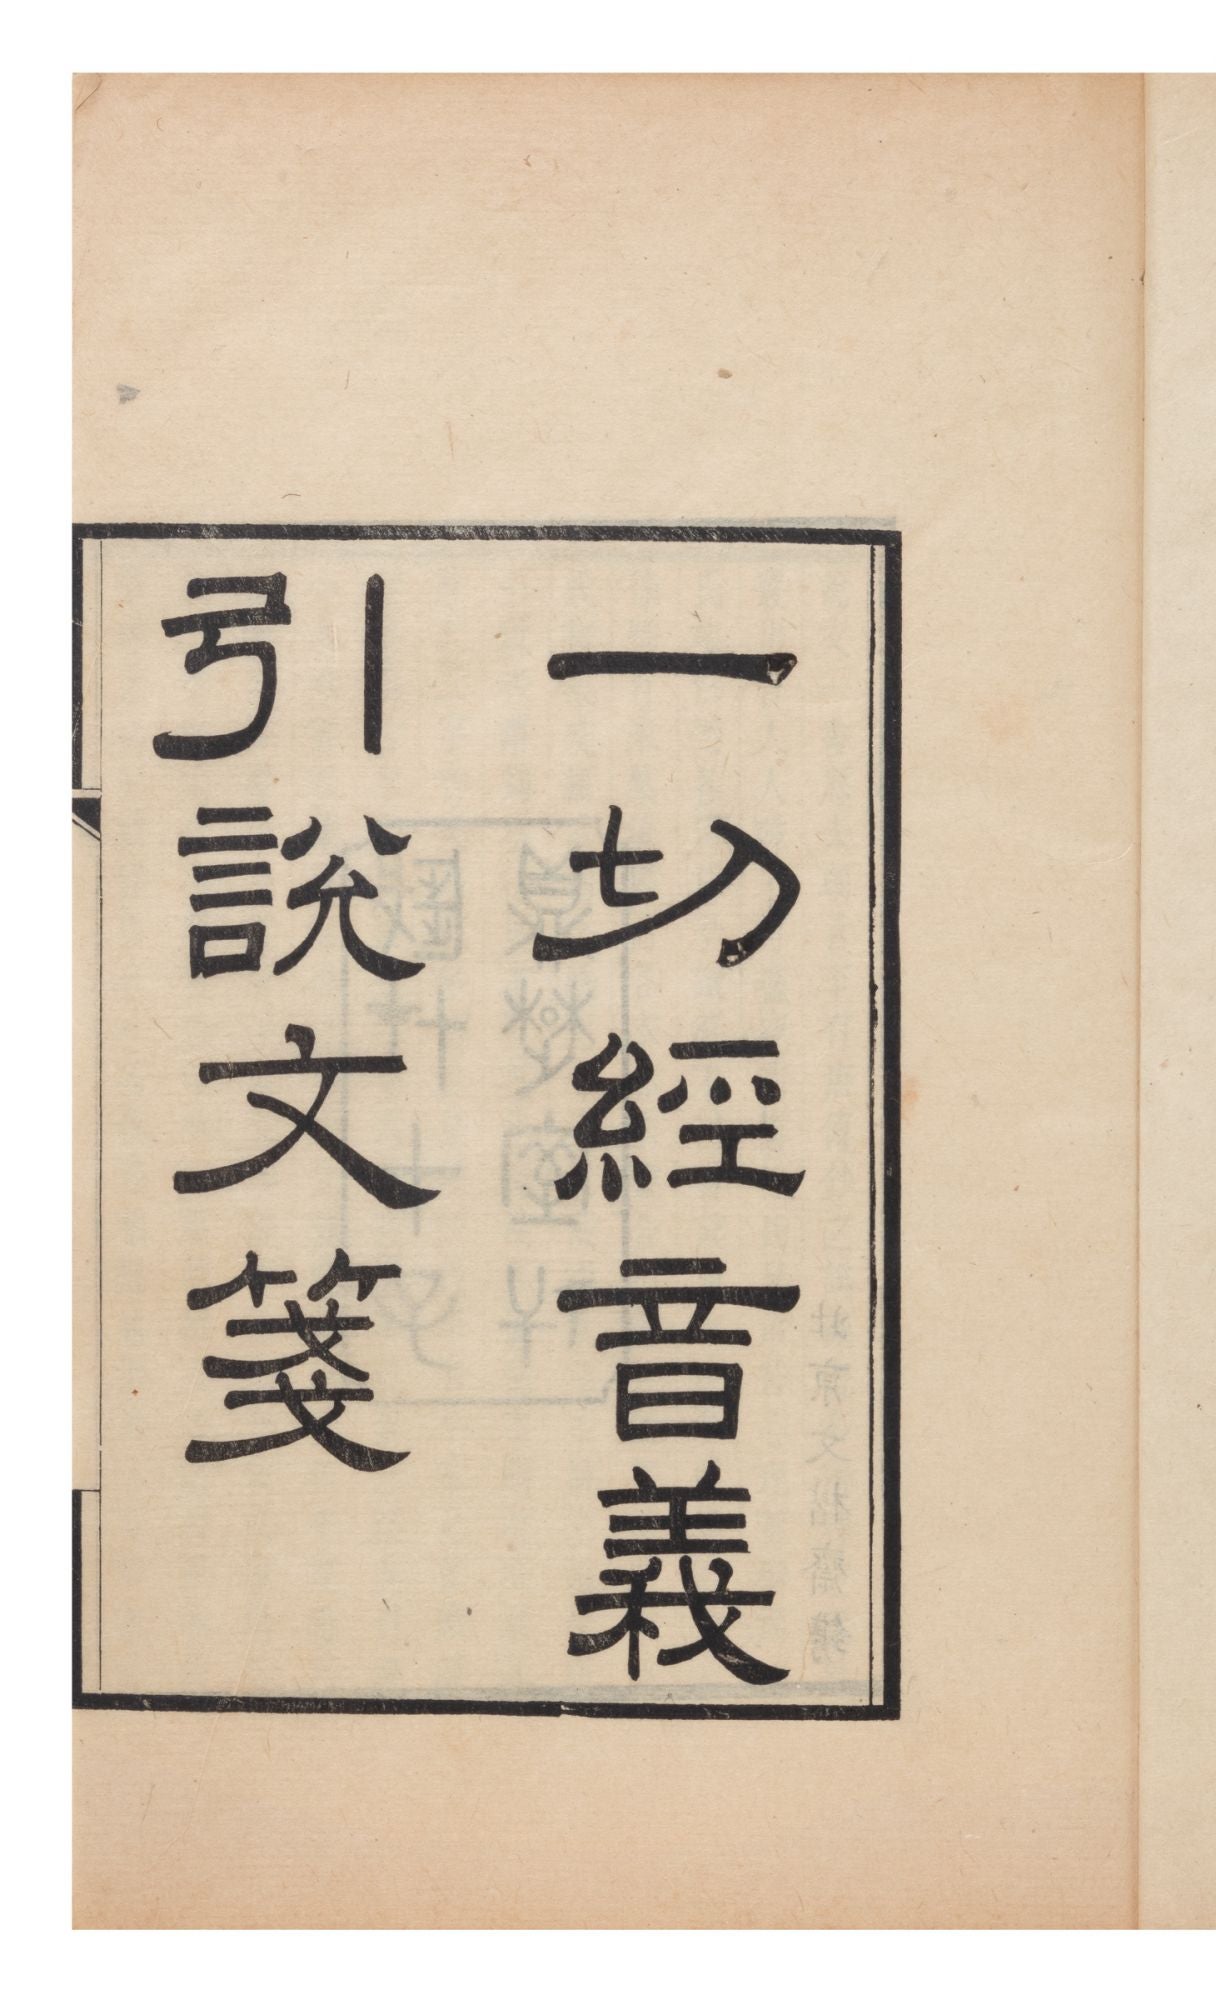 一切經音義
引説文箋